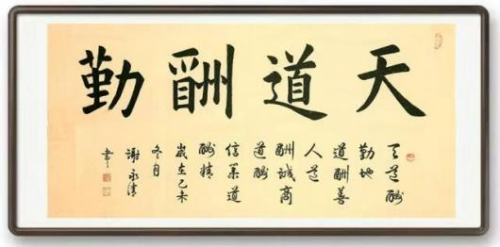 天道酬勤
天道酬
勤地
道酬善
人道
酬诚商
道酬
信業道
酬精
歲在己未
冬月
謝永清
書